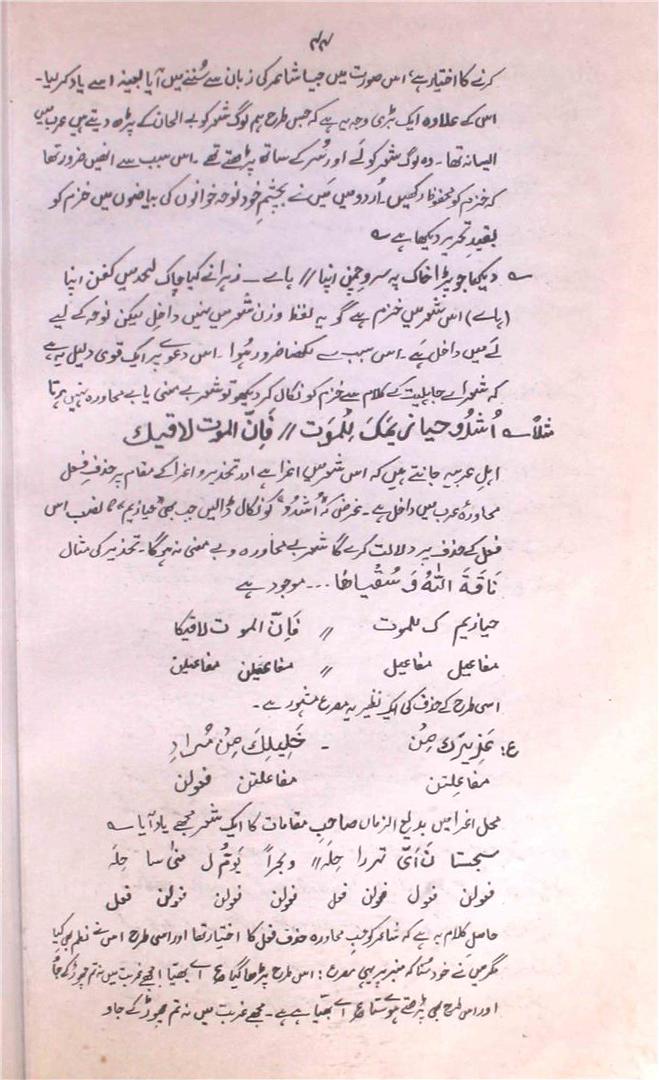 ۴۴
کرنے کا اختیار ہے، اس صورت میں جیسا شاعر کی زبان سے سُننے میں آیا بعینہٖ اسے یاد کر لیا۔
اس کے علاوہ ایک بڑی وجہ یہ ہے کہ جس طرح ہم لوگ شعر کو بے الحان کے پڑھ دیتے ہیں عرب میں
ایسا نہ تھا۔ وہ لوگ شعر کو لَے اور سُر کے ساتھ پڑھتے تھے۔ اس سبب سے انھیں ضرور تھا
کہ خزم کو محفوظ رکھیں۔ اُردو میں مَیں نے بچشمِ خود نوحہ خوانوں کی بیاضوں میں خزم کو
بقیدِ تحریر دیکھا ہے ؎
؎ دیکھا جو پڑا خاک پہ سروِ چمنی اپنا // ہاے ۔ زہرا نے کیا چاک لحد میں کفن اپنا
(ہاے) اس شعر میں خزم ہے گو یہ لفظ وزن شعر میں نہیں داخل لیکن نوحہ کے لیے
لَے میں داخل ہے۔ اس سبب سے لکھنا ضرور ہُوا۔ اس دعوے پر ایک قوی دلیل یہ ہے
کہ شعراے جاہلیت کے کلام سے خزم کو نکال کر دیکھو تو شعر بے معنی یا بے محاورہ نہیں ہوتا
مثلاً ؎ اُشدُو حیازیمکَ بلْموَت // فَاِنّ الموت لاقیك
اہلِ عربیہ جانتے ہیں کہ اس شعر میں اغرا ہے اور تحذیر و اغرا کے مقام پر حذفِ فعل
محاورۂ عرب میں داخل ہے۔ غرض کہ "اُشدُو" کو نکال ڈالیں جب بھی "حیازیم" کا نصب اس
فعل کے حذف پر دلالت کرے گا شعر بے محاورہ و بے معنی نہ ہوگا۔ تحذیر کی مثال
نَاقَةَ اللّٰہُ وَ سُقْیاھَا ... موجود ہے
حیازیم ک للموت // فَاِنّ الموت لاقیکا
مفاعیل مفاعیل // مفاعیلن مفاعیلن
اسی طرح کے حذف کی ایک نظیر یہ مصرع مشہور ہے۔
ع؛ عَذِیْرَكَ مِنْ - خَلِیلِكَ مِنْ مُرادِ
مفاعلتن مفاعلتن فعولن
محل اغرا میں بدیع الزماں صاحبِ مقامات کا ایک شعر مجھے یاد آیا ؎
فعولن فعول فعولن فعل فعولن فعولن فعولن فعل
حاصل کلام یہ ہے کہ شاعر کو حسبِ محاورہ حذف فعل کا اختیار تھا اور اسی طرح اس نے نظم بھی کیا
مگر میں نے خود سُنا کہ منبر پر یہی مصرع: اس طرح پڑھا گیا ع اے بھیّا! مجھے غربت میں نہ تم چھوڑ کے جاؤ
اور اس طرح بھی پڑھتے ہوئے سُنا ع اے بھیّا ہے ہے۔ مجھے غربت میں نہ تم چھوڑ کے جاو